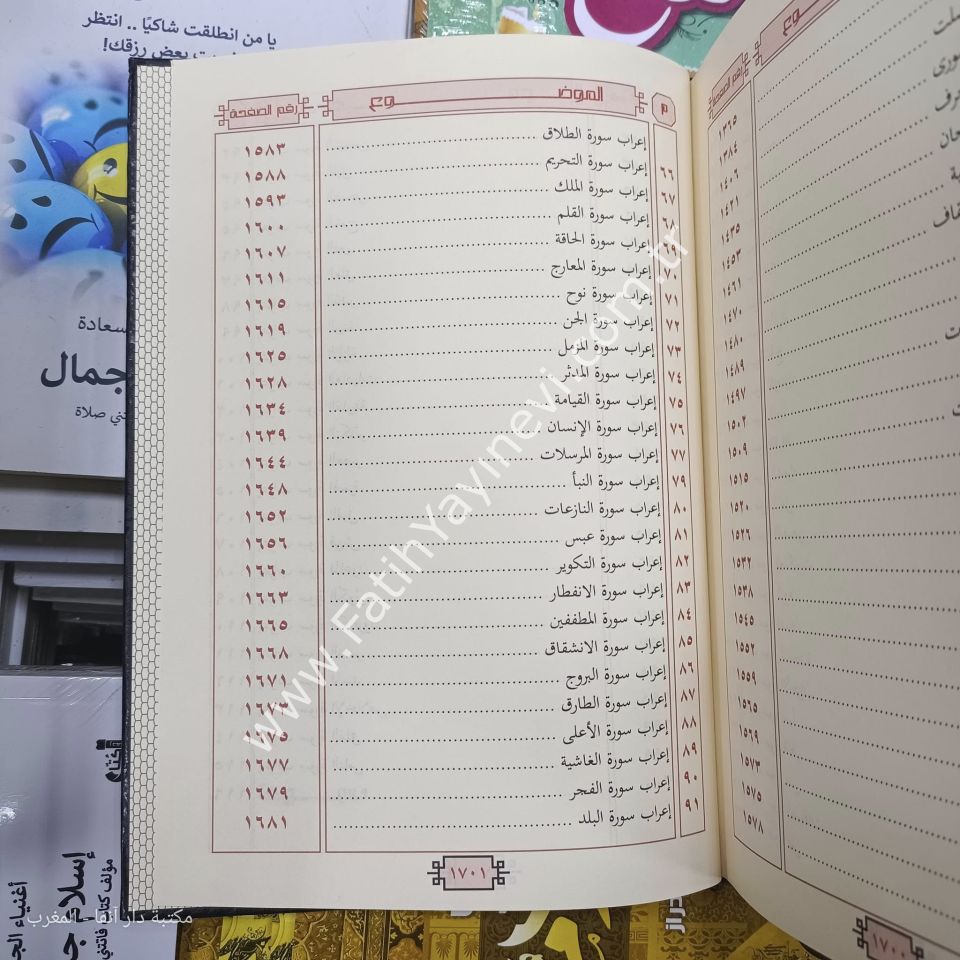 يا من انطلقت شاكيًا .. انتظر
بعض رزقك!
سعادة
جمال
صلاة
م الموضـوع رقم الصفحة
إعراب سورة الطلاق ١٥٨٣
٦٦ إعراب سورة التحريم ١٥٨٨
٦٧ إعراب سورة الملك ١٥٩٣
٦٨ إعراب سورة القلم ١٦٠٠
٦٩ إعراب سورة الحاقة ١٦٠٧
٧٠ إعراب سورة المعارج ١٦١١
٧١ إعراب سورة نوح ١٦١٥
٧٢ إعراب سورة الجن ١٦١٩
٧٣ إعراب سورة المزمل ١٦٢٥
٧٤ إعراب سورة المدثر ١٦٢٨
٧٥ إعراب سورة القيامة ١٦٣٤
٧٦ إعراب سورة الإنسان ١٦٣٩
٧٧ إعراب سورة المرسلات ١٦٤٤
٧٩ إعراب سورة النبأ ١٦٤٨
٨٠ إعراب سورة النازعات ١٦٥٢
٨١ إعراب سورة عبس ١٦٥٦
٨٢ إعراب سورة التكوير ١٦٦٠
٨٣ إعراب سورة الانفطار ١٦٦٣
٨٤ إعراب سورة المطففين ١٦٦٥
٨٥ إعراب سورة الانشقاق ١٦٦٨
٨٦ إعراب سورة البروج ١٦٧١
٨٧ إعراب سورة الطارق ١٦٧٣
٨٨ إعراب سورة الأعلى ١٦٧٥
٨٩ إعراب سورة الغاشية ١٦٧٧
٩٠ إعراب سورة الفجر ١٦٧٩
٩١ إعراب سورة البلد ١٦٨١
١٧٠١
رقم الصفحة
١٣٦٥
١٣٨٤
١٤٠٦
١٤٢١
١٤٣٥
١٤٥٣
١٤٦١
١٤٧٠
١٤٨٠
١٤٨٩
١٤٩٧
١٥٠٢
١٥٠٩
١٥١٥
١٥٢٠
١٥٢٦
١٥٣٢
١٥٣٨
١٥٤٥
١٥٥٢
١٥٥٩
١٥٦٥
١٥٦٩
١٥٧٣
١٥٧٥
١٥٧٨
١٧٠٠
www.FatihYayinevi.com.tr
إسلام
أغنياء
مكتبة دار آنفا - المغرب